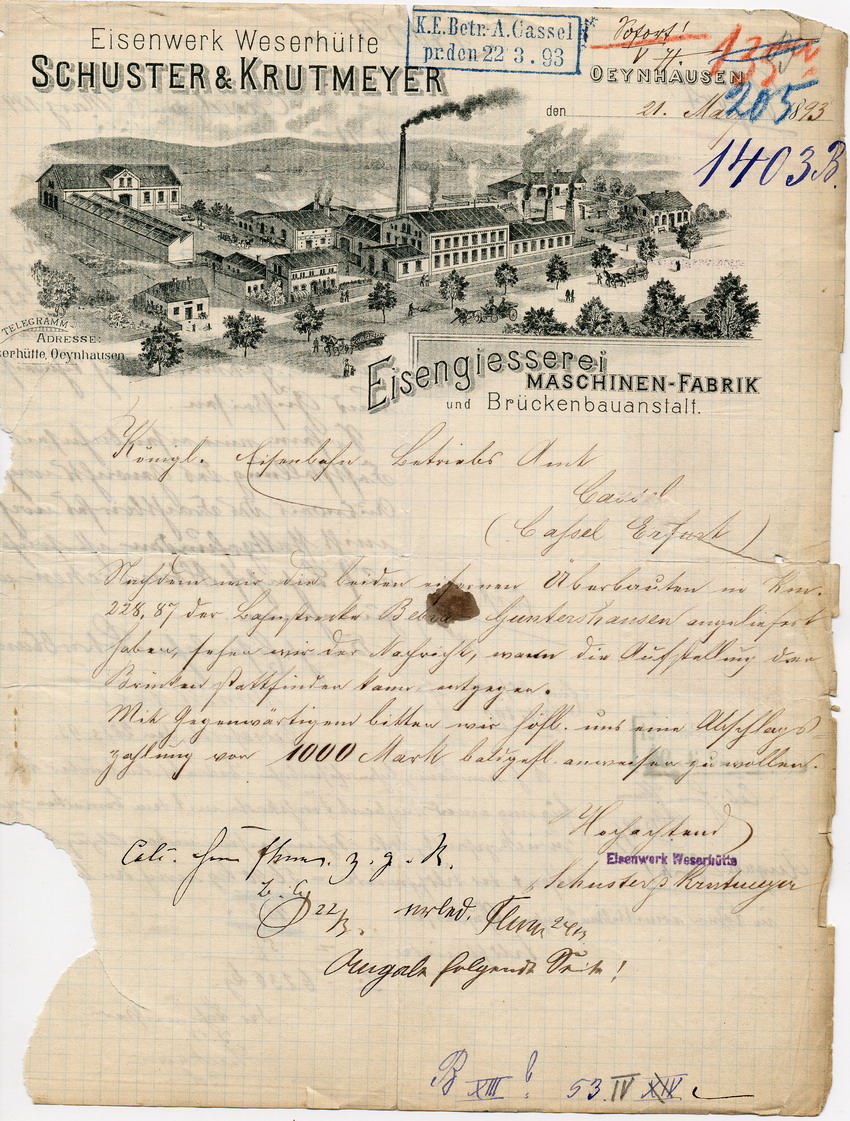 Eisenwerk Weserhütte
SCHUSTER & KRUTMEYER
K.E.Betr.-A.Cassel
pr.den 22 3. 93
Sofort!
OEYNHAUSEN
135
205
den 21. März 1893
1403 B.
TELEGRAMM-
ADRESSE:
serhütte, Oeynhausen
Eisengiesserei
MASCHINEN-FABRIK
und Brückenbauanstalt.
Königl. Eisenbahn-Betriebs Amt
Cassel
(Cassel Erfurt)
Nachdem wir die beiden eisernen Überbauten in Km.
228,87 der Bahnstrecke Bebra Guntershausen angeliefert
haben, sehen wir der Nachricht, wann die Aufstellung der
Brücken stattfinden kann entgegen.
Mit Gegenwärtigem bitten wir höfl. uns eine Abschlags-
zahlung von 1000 Mark baldgefl. anweisen zu wollen.
Hochachtend
Eisenwerk Weserhütte
Schuster & Krutmeyer
z. g. K.
22/3.
erled. 24/3
folgende Seite!
B XIII 53 IV XIV